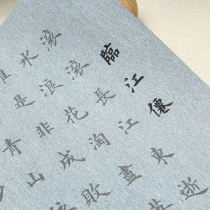 臨江僊
滾滾長江東逝
水浪花淘盡
是非成敗
青山